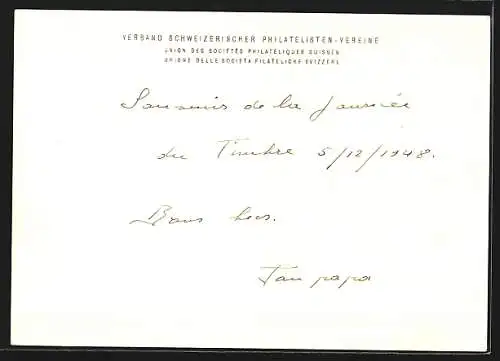 VERBAND SCHWEIZERISCHER PHILATELISTEN-VEREINE
UNION DES SOCIÉTÉS PHILATÉLIQUES SUISSES
UNIONE DELLE SOCIETÀ FILATELICHE SVIZZERE
Souvenir de la Journée
du Timbre 5/12/1948.
Bons
papa